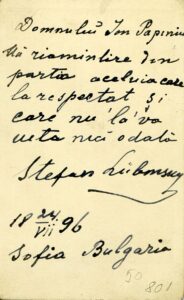 Domnului Ion Papiniu
Ca riamintire din
partia aceluia care
la respectat și
care nu la va
uita nici odată
Stefan Lubomsky
18 24/VII 96
Sofia Bulgaria
50
801